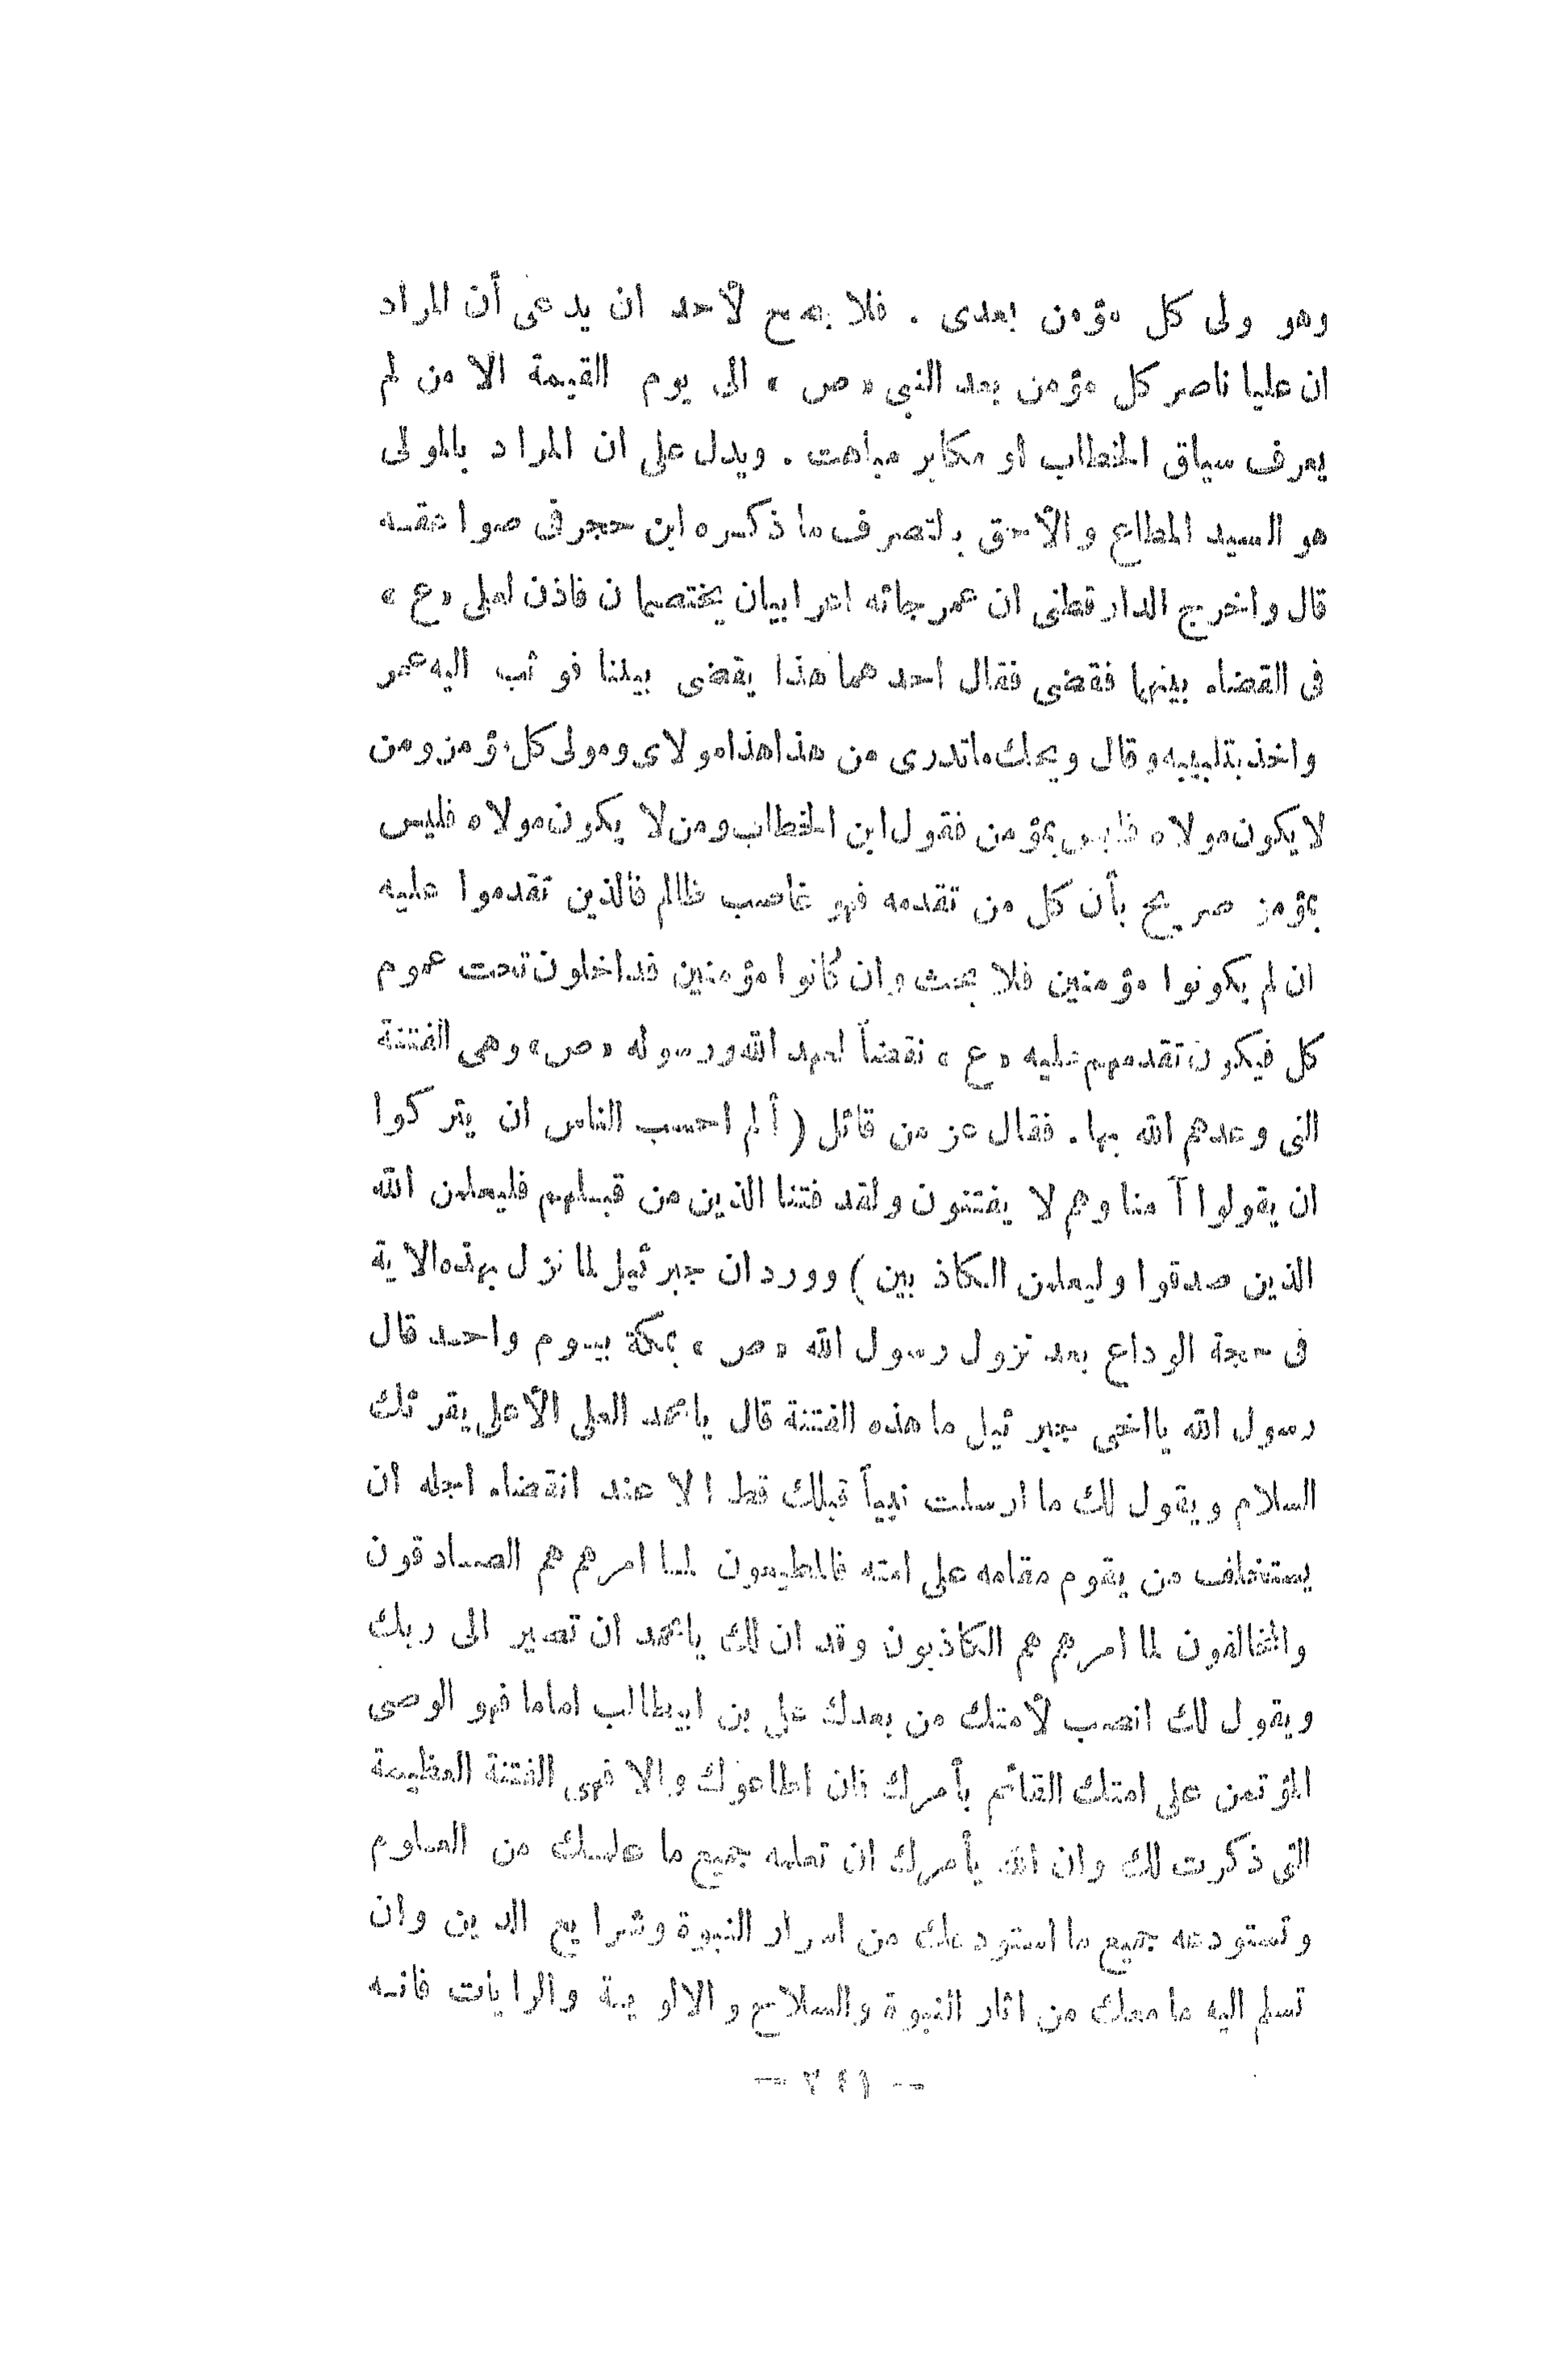 وهو ولى كل مؤمن بعدى . فلا يصح لأحد ان يدعى أن المراد
ان عليا ناصر كل مؤمن بعد النبى « ص » الى يوم القيمة الا من لم
يعرف سياق الخطاب او مكابر مباهت . ويدل على ان المراد بالمولى
هو السيد المطاع والأحق بالتصرف ما ذكره ابن حجر فى صواعقه
قال واخرج الدارقطنى ان عمر جائه اعرابيان يختصمان فاذن لعلى « ع »
فى القضاء بينهما فقضى فقال احدهما هذا يقضى بيننا فوثب اليه عمر
واخذ بتلبيبه وقال ويحك ماتدرى من هذا هذا مولاى ومولى كل مؤمن ومن
لا يكون مولاه فليس بمؤمن فقول ابن الخطاب ومن لا يكون مولاه فليس
بمؤمن صريح بأن كل من تقدمه فهو غاصب ظالم فالذين تقدموا عليه
ان لم يكونوا مؤمنين فلا بحث وان كانوا مؤمنين فداخلون تحت عموم
كل فيكون تقدمهم عليه « ع » نقضاً لعهد الله ورسوله « ص » وهى الفتنة
التى وعدهم الله بها . فقال عز من قائل ( ألم احسب الناس ان يتركوا
ان يقولوا آمنا وهم لا يفتنون ولقد فتنا الذين من قبلهم فليعلمن الله
الذين صدقوا وليعلمن الكاذبين ) وورد ان جبرئيل لما نزل بهذه الاية
فى حجة الوداع بعد نزول رسول الله « ص » بمكة بيوم واحد قال
رسول الله يااخى جبرئيل ما هذه الفتنة قال يامحمد العلى الأعلى يقرئك
السلام ويقول لك ما ارسلت نبياً قبلك قط الا عند انقضاء اجله ان
يستخلف من يقوم مقامه على امته فالمطيعون لما امرهم هم الصادقون
والمخالفون لما امرهم هم الكاذبون وقد ان لك يامحمد ان تصير الى ربك
ويقول لك انصب لأمتك من بعدك على بن ابيطالب اماما فهو الوصى
المؤتمن على امتك القائم بأمرك فان اطاعوك والا فهى الفتنة العظيمة
التى ذكرت لك وان الله يأمرك ان تعلمه جميع ما علمك من العلوم
وتستودعه جميع ما استودعك من اسرار النبوة وشرايع الدين وان
تسلم اليه ما معك من اثار النبوة والسلاح والالوية والرايات فانه